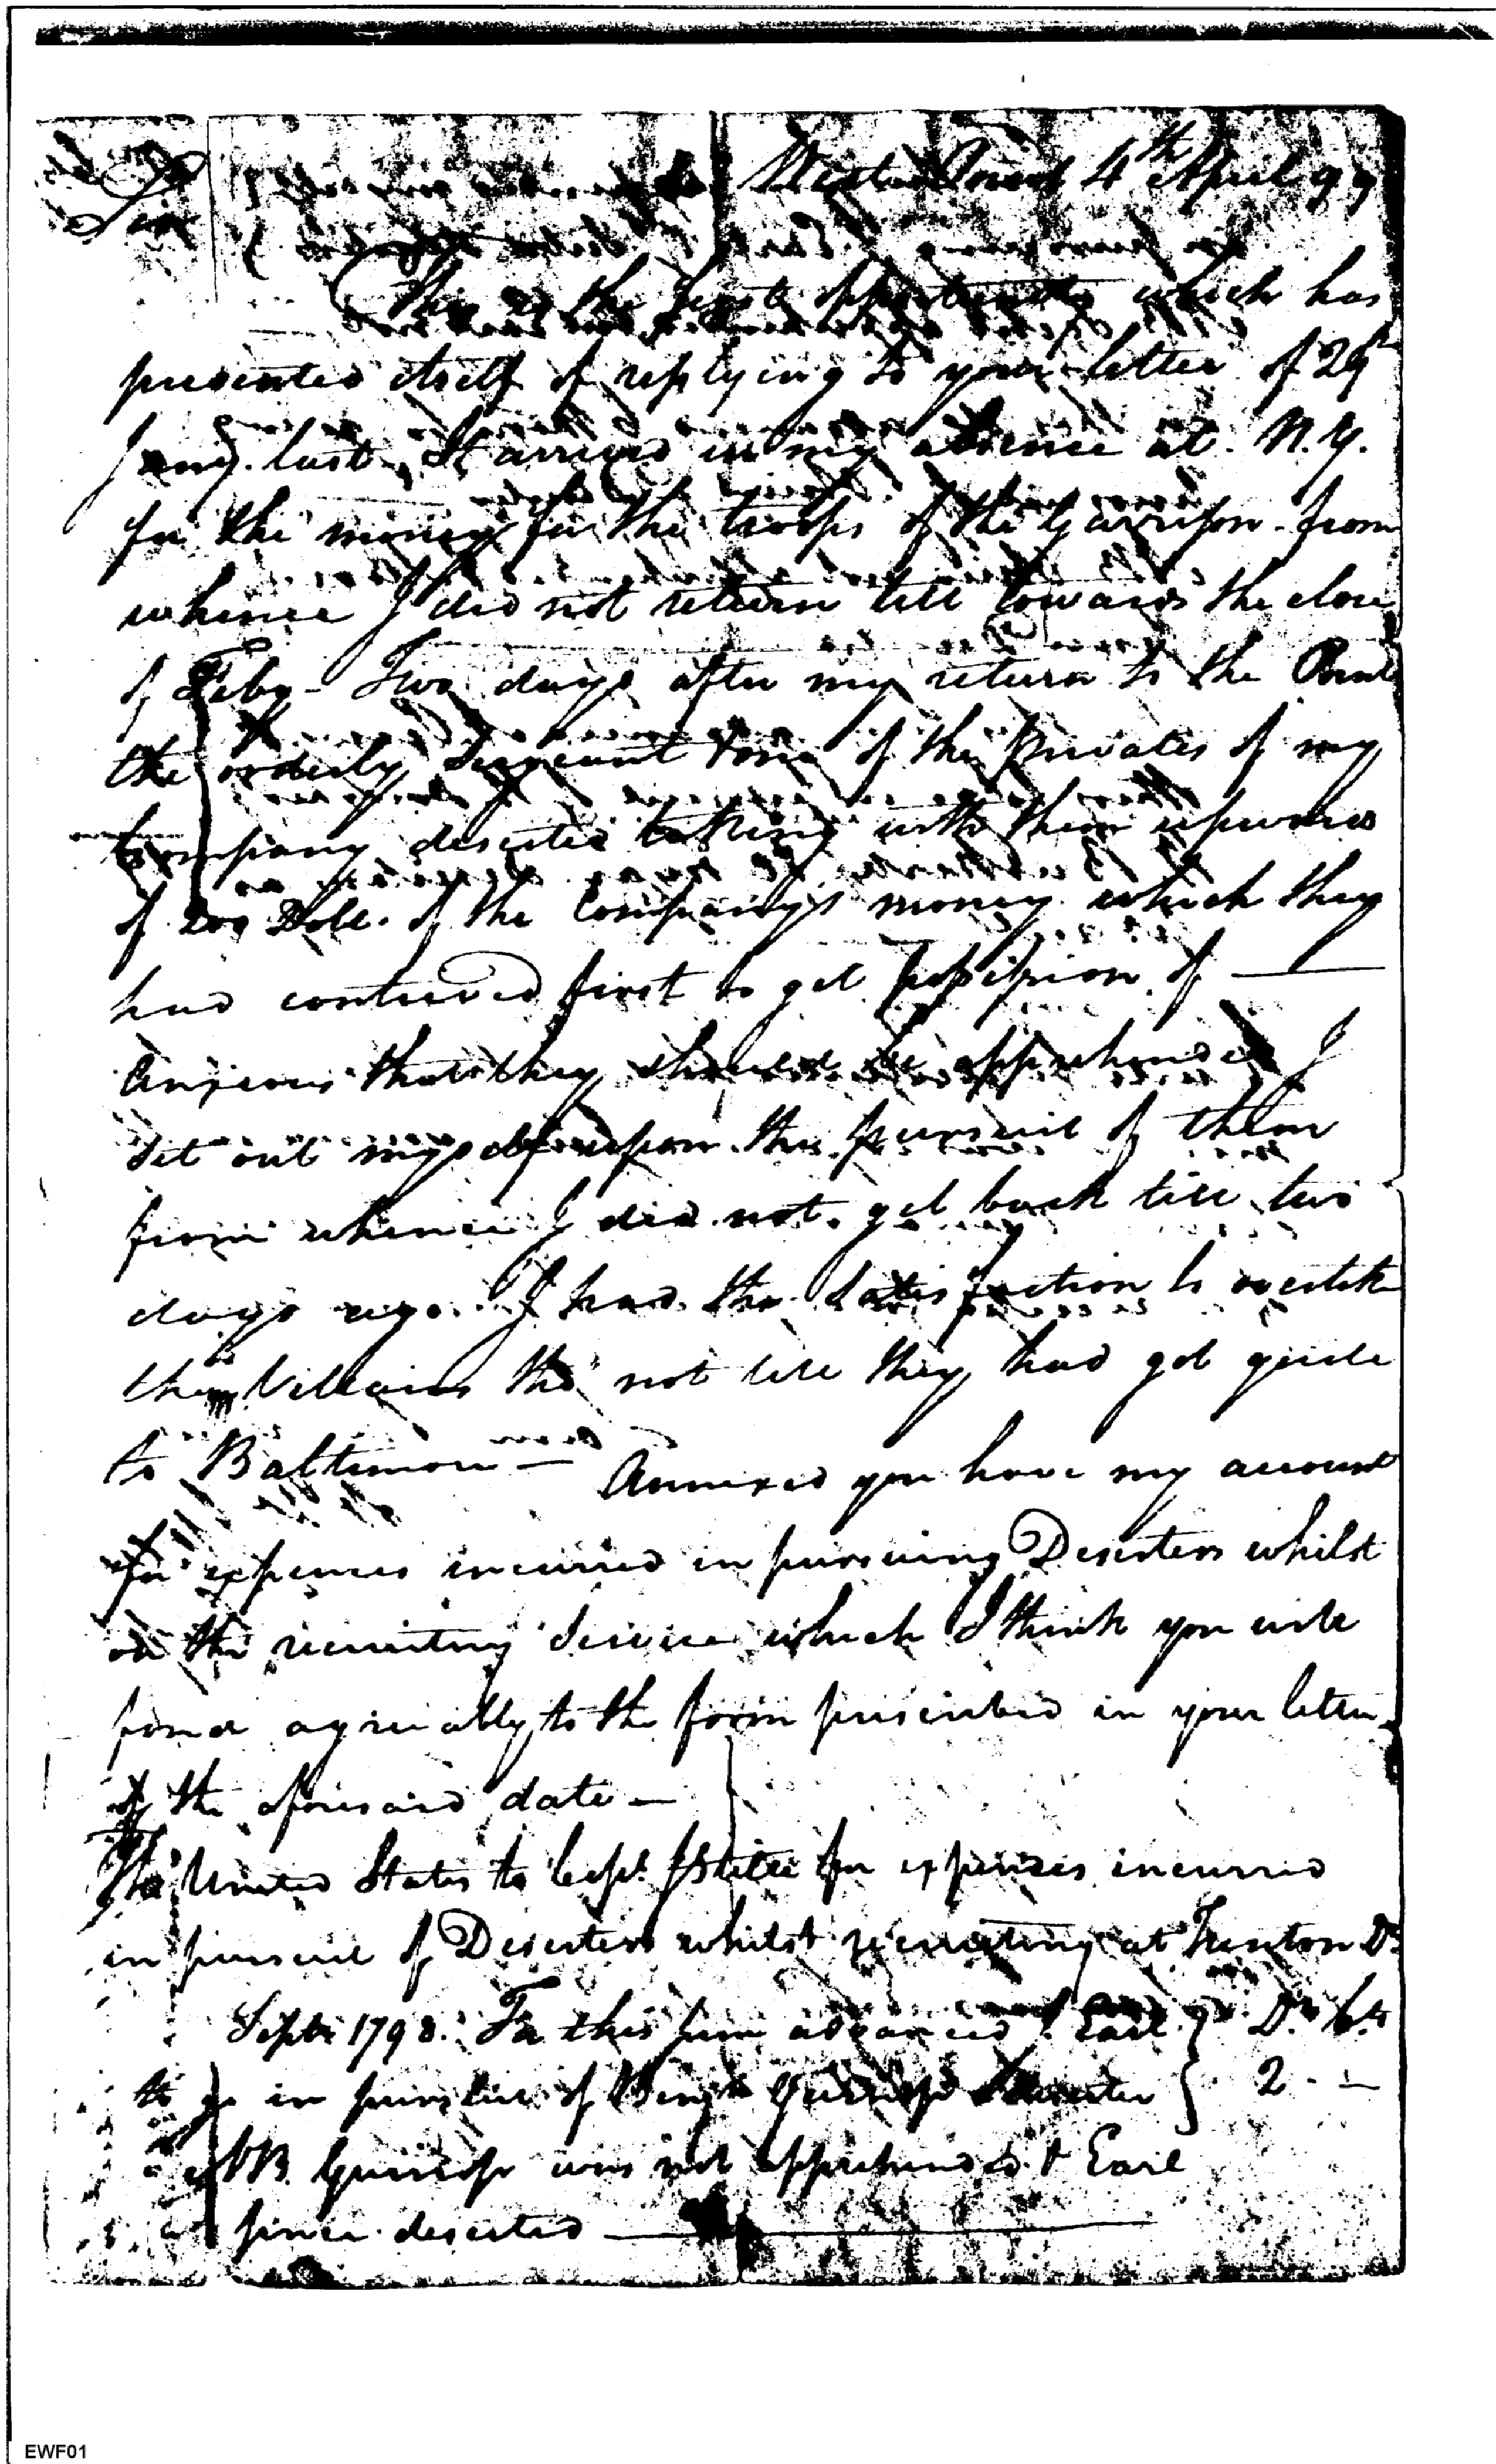 West Point 4th April 99
Sir
This is the first opportunity which has
presented itself of replying to your letter of 29th
Jany. last. It arrived in my absence at N.Y.
for the money for the troops of the Garrison from
whence I did not return till towards the close
of Feby - Two days after my return to the Point
the orderly Sergeant & one of the Privates of my
Company deserted taking with them upwards
of 200 Doll. of the Company's money which they
had contrived first to get possession of —
Anxious that they should be apprehended I
set out myself upon the pursuit of them
from whence I did not get back till two
days ago. I had the satisfaction to overtake
the Villains tho' not till they had got quite
to Baltimore — Annexed you have my account
for expences incurred in pursuing Deserters whilst
on the recruiting service which I think you will
find agreeably to the form prescribed in your letter
of the aforesaid date —
The United States to Capt. for expenses incurred
in pursuit of Deserters whilst recruiting at Trenton Dr.
Septr. 1798. For this sum advanced Earl } Ds. Cts
to go in pursuit of Benjn. Deserter } 2. —
NB. was not apprehended & Earl
since deserted —
EWF01